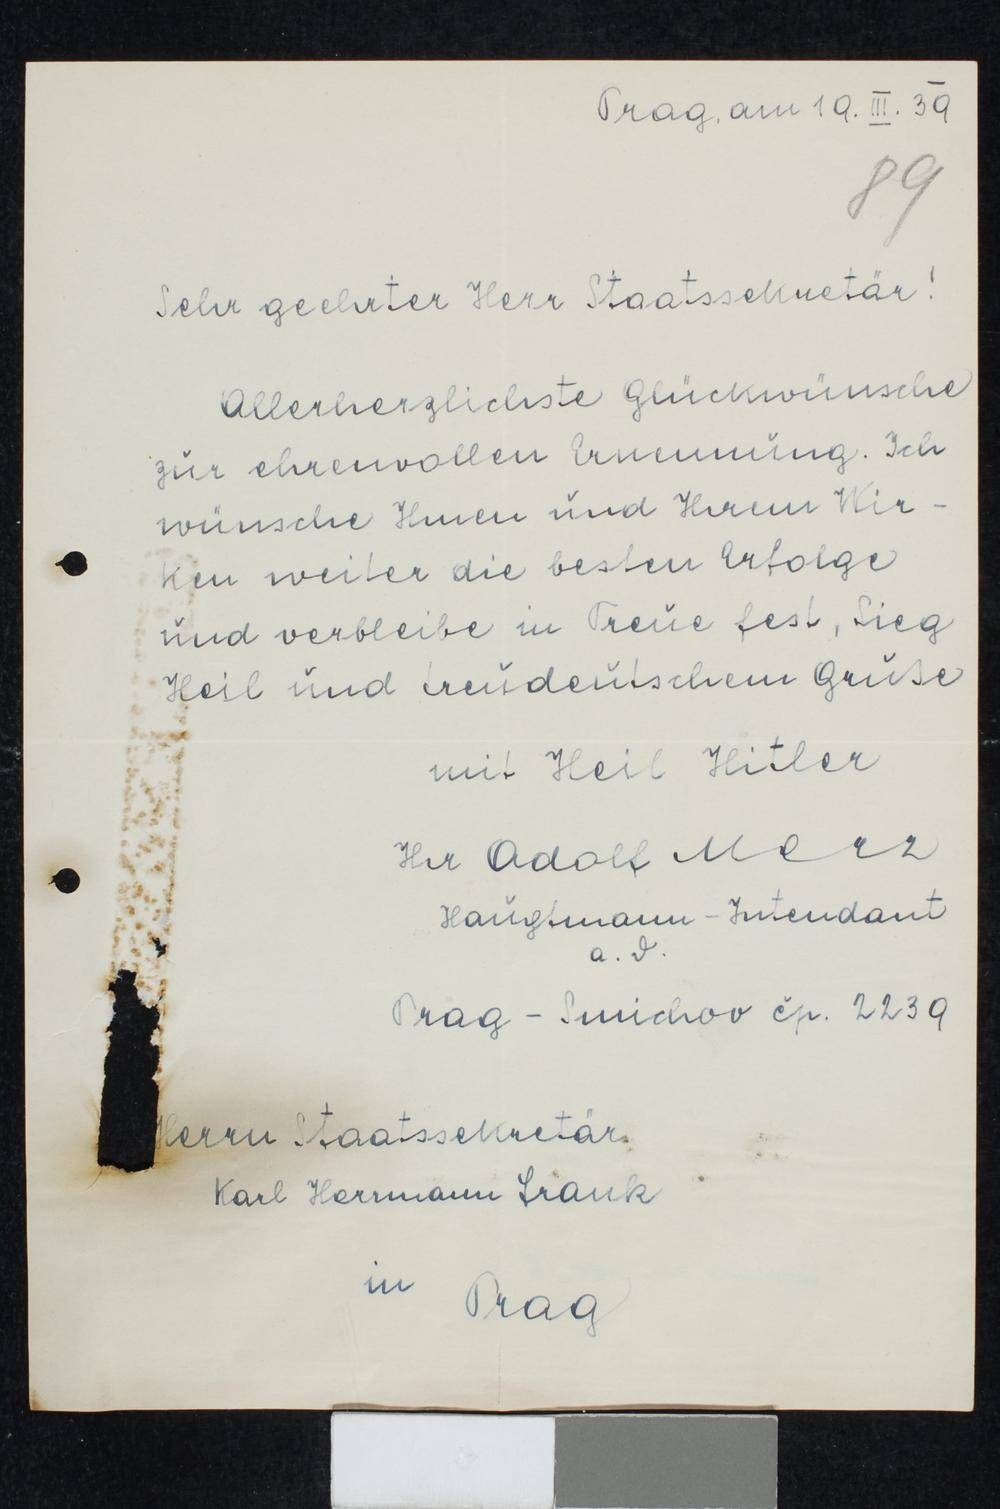 Prag, am 19. III. 39
89
Sehr geehrter Herr Staatssekretär!
Allerherzlichste Glückwünsche
zur ehrenvollen Ernennung. Ich
wünsche Ihnen und Ihrem Wir-
ken weiter die besten Erfolge
und verbleibe in Treue fest, Sieg
Heil und treudeutschem Gruße
mit Heil Hitler
Ihr Adolf Merz
Hauptmann-Intendant
a. D.
Prag - Smichov čp. 2239
Herrn Staatssekretär
Karl Herrmann Frank
in Prag